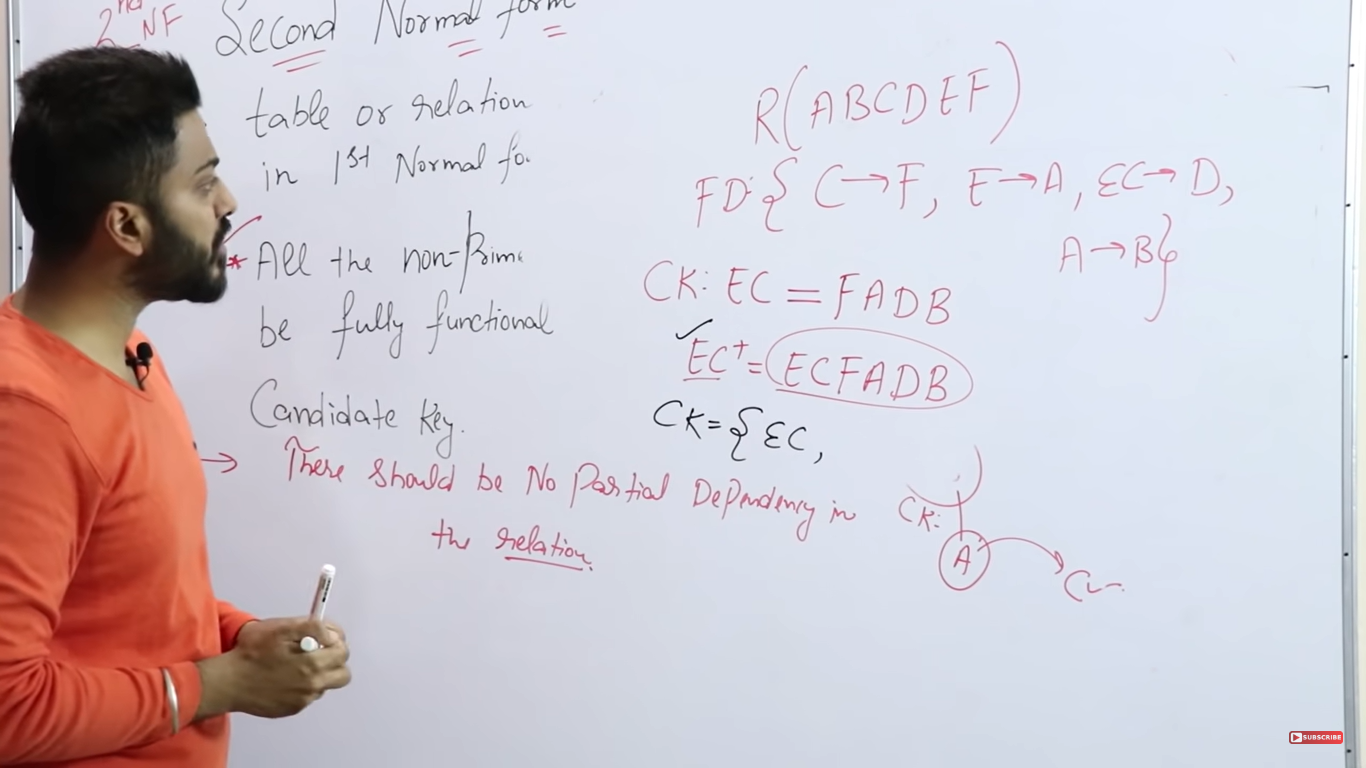 2nd NF
Second Normal form
table or relation
in 1st Normal fo
All the non-Prime
be fully functional
Candidate Key.
→ There should be No Partial Dependency in
the relation.
R(ABCDEF)
FD:{ C→F, E→A, EC→D,
A→B}
CK: EC = FADB
✓
EC+ = ECFADB
CK={EC,
CK:
A
SUBSCRIBE